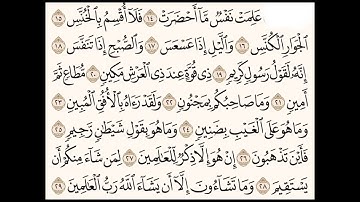 عَلِمَتْ نَفْسٌ مَّآ أَحْضَرَتْ ١٤ فَلَآ أُقْسِمُ بِٱلْخُنَّسِ ١٥
ٱلْجَوَارِ ٱلْكُنَّسِ ١٦ وَٱلَّيْلِ إِذَا عَسْعَسَ ١٧ وَٱلصُّبْحِ إِذَا تَنَفَّسَ ١٨
إِنَّهُۥ لَقَوْلُ رَسُولٍ كَرِيمٍ ١٩ ذِى قُوَّةٍ عِندَ ذِى ٱلْعَرْشِ مَكِينٍ ٢٠ مُّطَاعٍ ثَمَّ
أَمِينٍ ٢١ وَمَا صَاحِبُكُم بِمَجْنُونٍ ٢٢ وَلَقَدْ رَءَاهُ بِٱلْأُفُقِ ٱلْمُبِينِ ٢٣
وَمَا هُوَ عَلَى ٱلْغَيْبِ بِضَنِينٍ ٢٤ وَمَا هُوَ بِقَوْلِ شَيْطَٰنٍ رَّجِيمٍ ٢٥
فَأَيْنَ تَذْهَبُونَ ٢٦ إِنْ هُوَ إِلَّا ذِكْرٌ لِّلْعَٰلَمِينَ ٢٧ لِمَن شَآءَ مِنكُمْ أَن
يَسْتَقِيمَ ٢٨ وَمَا تَشَآءُونَ إِلَّآ أَن يَشَآءَ ٱللَّهُ رَبُّ ٱلْعَٰلَمِينَ ٢٩